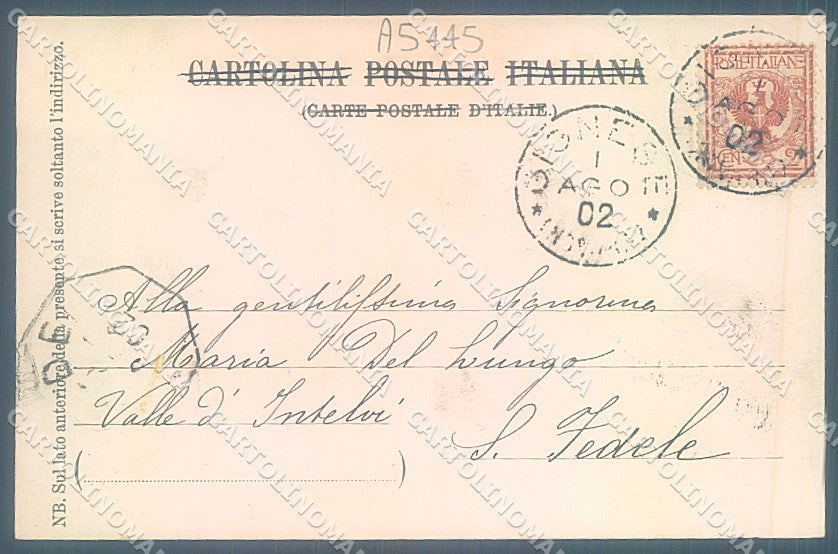 A5445
CARTOLINA POSTALE ITALIANA
(CARTE POSTALE D'ITALIE.)
POSTE ITALIANE
1
AGO
02
1
AGO
02
Alla gentilissima Signorina
Maria Del Lungo
Valle d'Intelvi
S. Fedele
NB. Sul lato anteriore della presente, si scrive soltanto l'indirizzo.
CARTOLINOMANIA